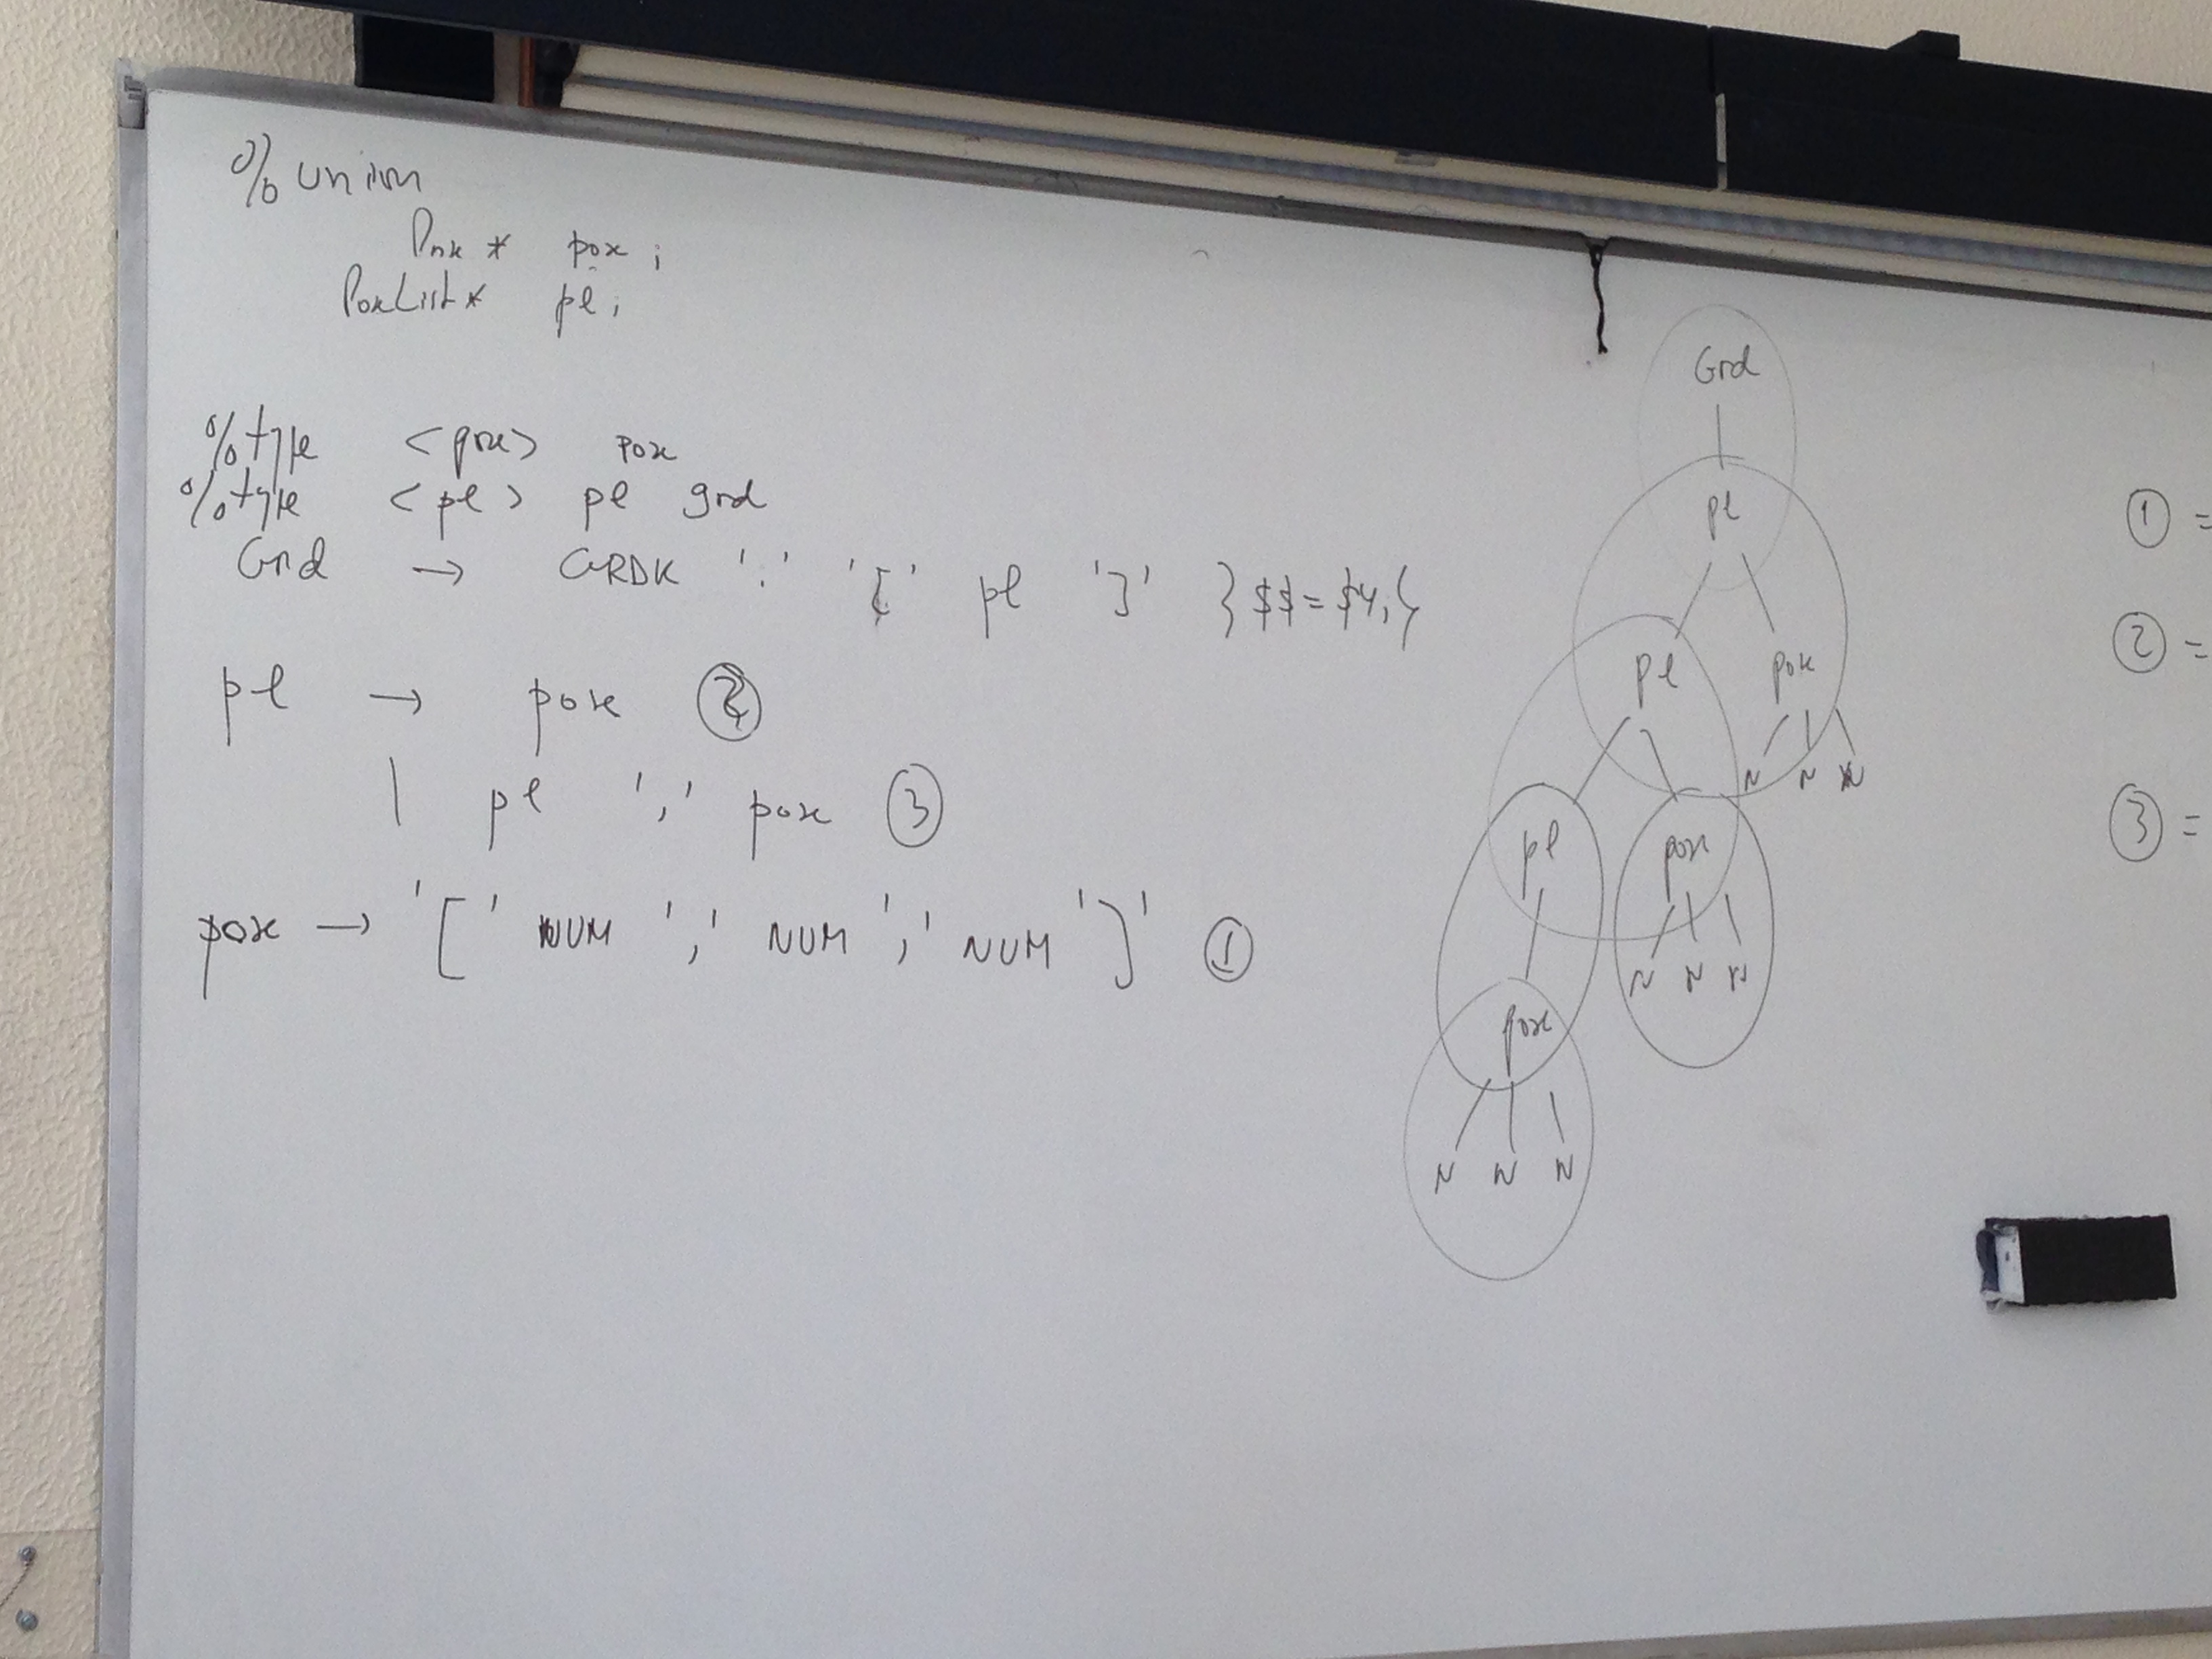 %union
Pox * pox ;
PoxList * pl ;
%type <pox> pox
%type <pl> pl grd
Grd → GRDK ':' '[' pl ']' } $$ = $4; {
pl → pox ②
| pl ',' pox ③
pox → '[' NUM ',' NUM ',' NUM ']' ①
Grd
pl
pl pox
N N N
pl pox
N N N
pox
N N N
① =
② =
③ =